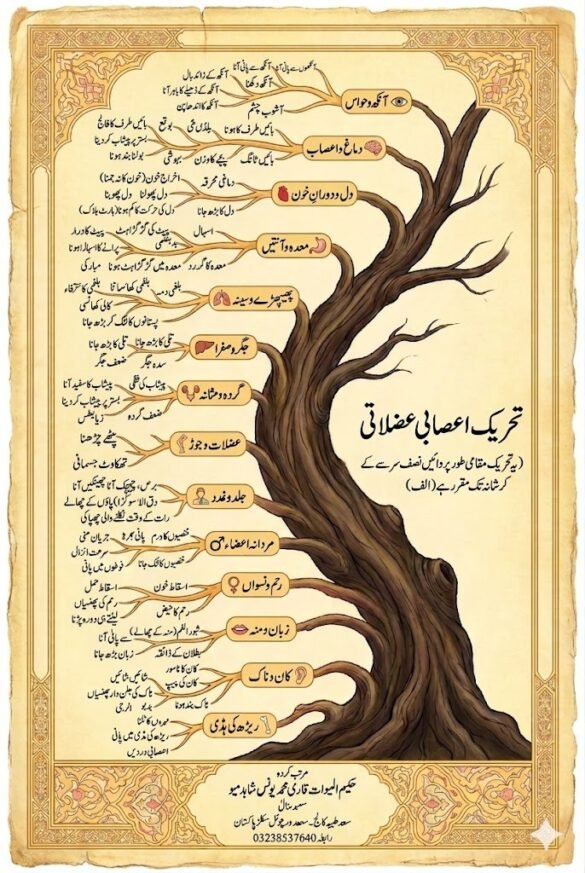 آنکھوں سے پانی آنا
آنکھ سے پانی آنا
آنکھ کے زائد بال
آنکھ دکھنا
آنکھ کے ڈھیلے کا باہر آنا
آشوب چشم
آنکھ کا اندھا پن
آنکھ و حواس
بائیں طرف کا ہونا
بلڈنگی
بو تقع
بائیں طرف کا فالج
بستر پر پیشاب کر دینا
بائیں ٹانگ
بچے کا وزن
بیہوشی
بولنا بند ہونا
دماغ و اعصاب
دماغی محرقہ
اخراج خون (خون کا نہ جمنا)
دل پھولنا
دل پھوبنا
دل کا بڑھ جانا
دل کی حرکت کا کم ہونا (ہارٹ بلاک)
دل و دوران خون
اسہال
پیٹ کی گڑگڑاہٹ
پیٹ کا درد
بد ہضمی
پرانے کا اسہال ہونا
معدہ کا گررد
معدہ میں گڑگڑاہٹ ہونا
مبارکی
معدہ و آنتیں
بلغمی دمہ
بلغمی کھانسا نا
بلغمی کا سترفاء
کالی کھانسی
پستانوں کا لٹک کر بڑھ جانا
پھیپھڑے و سینہ
تلی کا بڑھ جانا
تلی کا بڑھ جانا
سدہ جگر
ضعف جگر
جگر و صفرا
پیشاب کی تنگی
پیشاب کا سفید آنا
بستر پر پیشاب کر دینا
ضعف گردہ
زیابیطس
گردہ و مثانہ
پٹھے چڑھنا
تھکاوٹ جسمانی
عضلات و جوڑ
برص، چیچک آنا چھینکیں آنا
دق الاسو گزا) پاؤں کے چھالے
رات کے وقت نکلنے والی چھپاکی
جلد و غدد
خصیوں کا درم
پانی بھرنا
جریان منی
سرعت انزال
خصیوں کا لٹک جانا
فوطوں میں پانی
مردانہ اعضاء
اسقاط خون
اسقاط حمل
رحم کی پھنسیاں
رحم کا حیض
لیٹتے ہی دورہ پڑنا
رحم و نسواں
شبور الفم (منہ کے چھالے)
سے پانی آنا
بطلان کے ذائقہ
زبان بڑھ جانا
زبان و منہ
کان کا ناسور
شائیں شائیں
کان کی پیپ
ناک کی جلن دار پھنسیاں
ناک بند ہونا
بدبو
الرجی
کان و ناک
مہروں کا ٹلنا
ریڑھ کی ہڈی میں پانی
اعصابی دردیں
ریڑھ کی ہڈی
تحریک اعصابی عضلاتی
(یہ تحریک مقامی طور پر دائیں نصف سر سے کے
کر شانہ تک مقرر ہے (الف)
مرتب کردہ
حکیم المیوات قاری محمد یونس شاہد میو
سعید منال
سعد طبیہ کالج۔ سعد ورچوئل سکلز پاکستان
رابطہ 03238537640